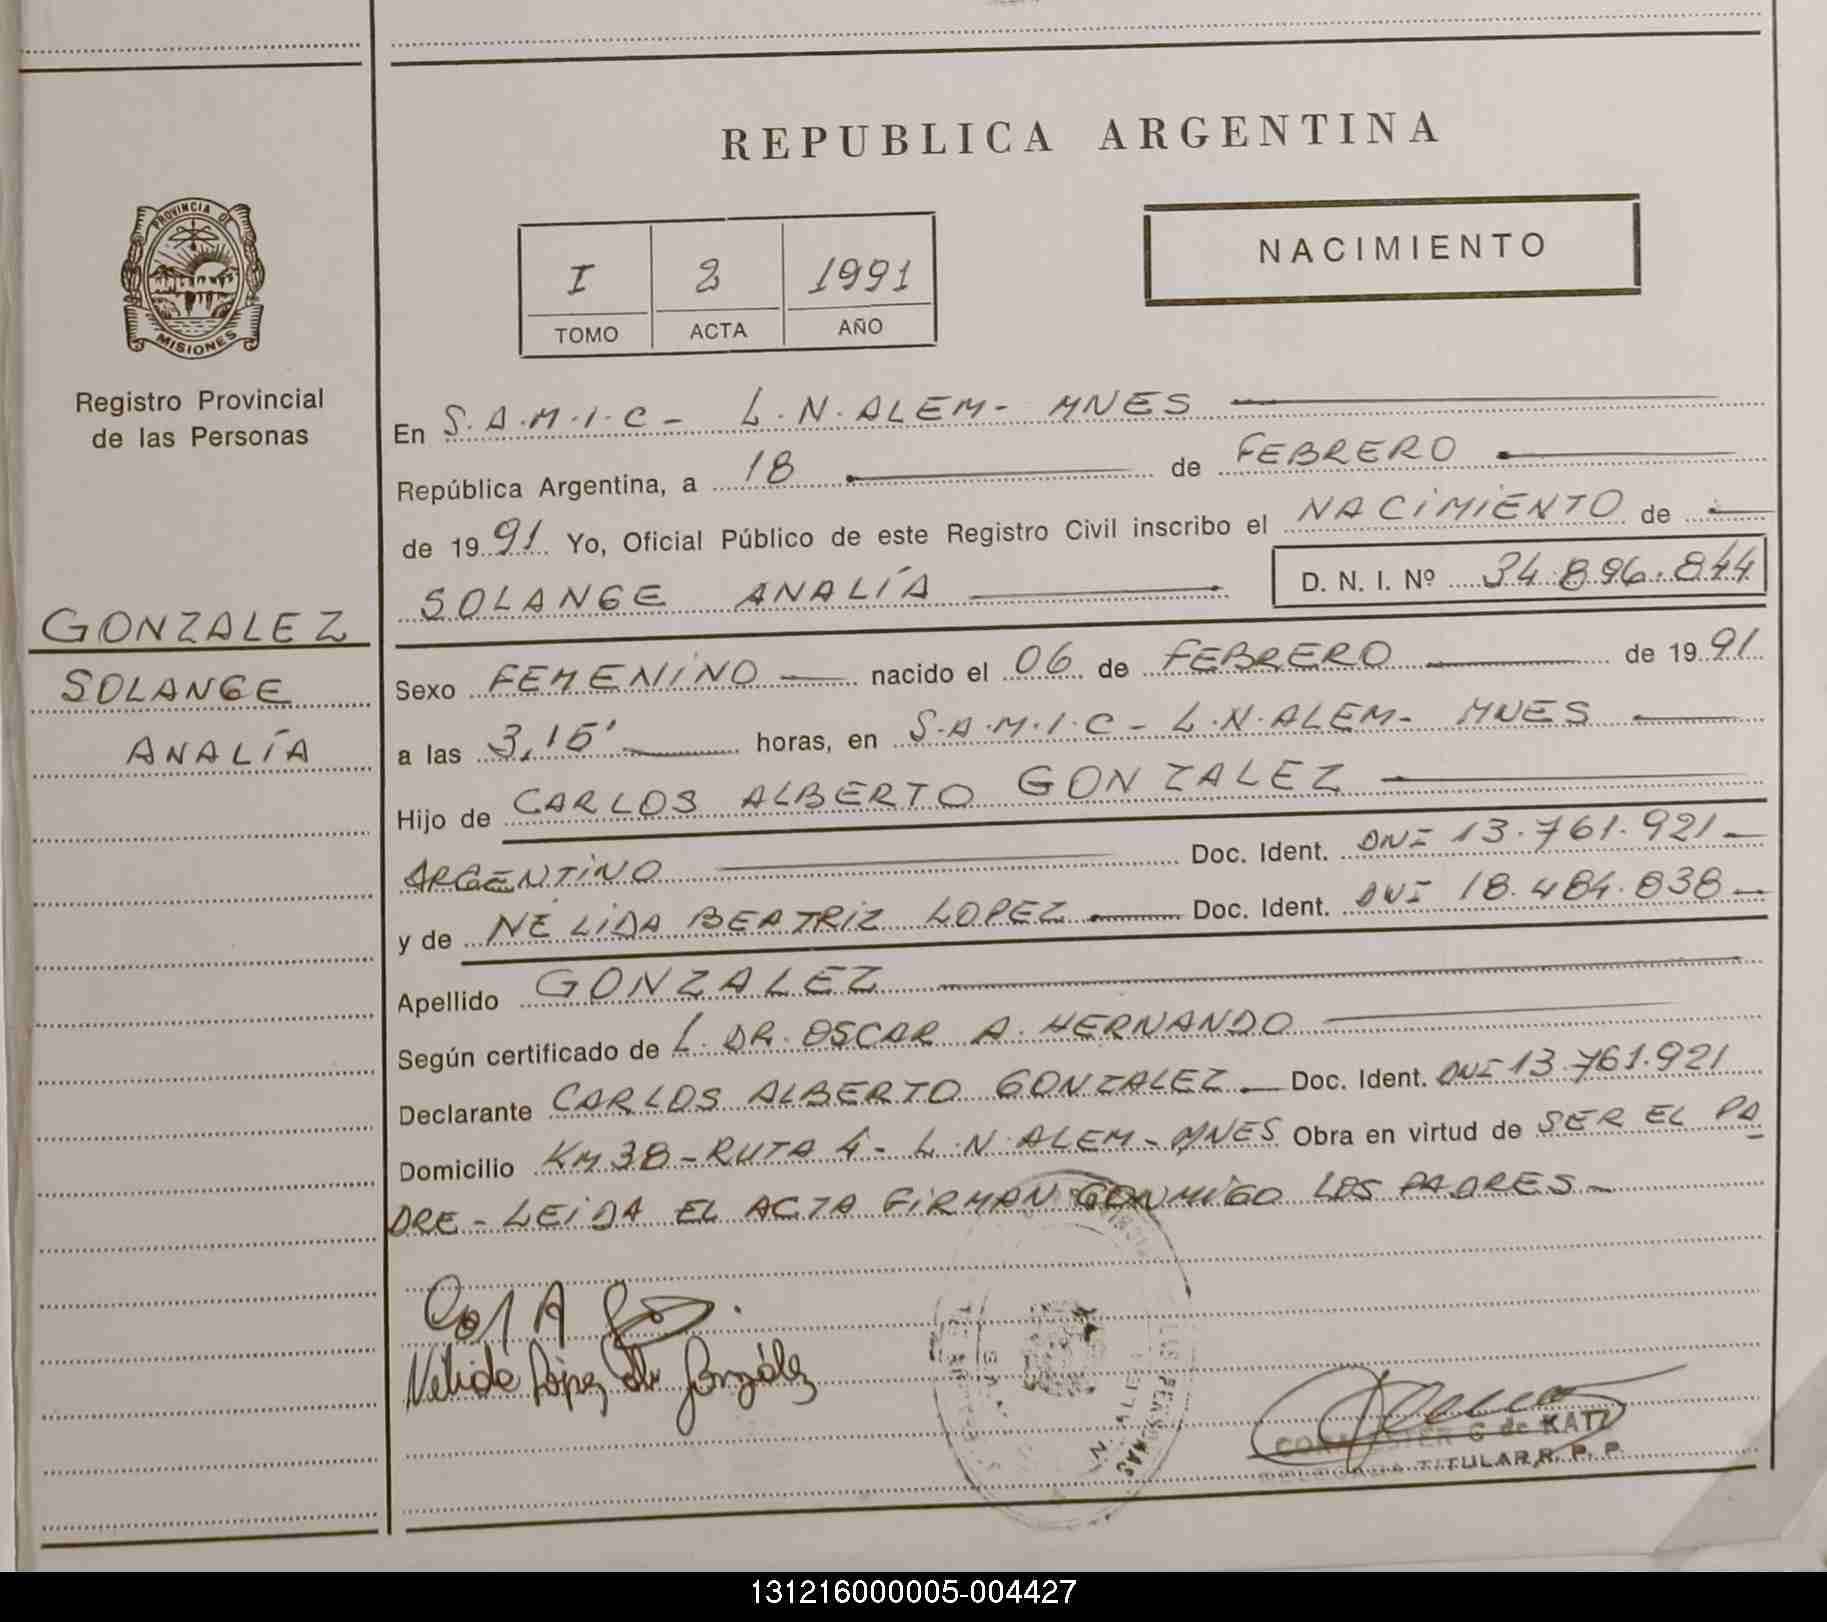 REPUBLICA ARGENTINA
NACIMIENTO
I 2 1991
TOMO ACTA AÑO
PROVINCIA DE
MISIONES
Registro Provincial
de las Personas
GONZALEZ
SOLANGE
ANALÍA
En S.A.M.I.C - L.N.ALEM- MNES
República Argentina, a 18 de FEBRERO
de 1991 Yo, Oficial Público de este Registro Civil inscribo el NACIMIENTO de
SOLANGE ANALÍA D. N. I. Nº 34.896.844
Sexo FEMENINO nacido el 06 de FEBRERO de 1991
a las 3,15' horas, en S.A.M.I.C - L.N.ALEM- MNES
Hijo de CARLOS ALBERTO GONZALEZ
ARGENTINO Doc. Ident. DNI 13.761.921-
y de NÉLIDA BEATRIZ LOPEZ Doc. Ident. DNI 18.484.838-
Apellido GONZALEZ
Según certificado de L. DR. OSCAR A. HERNANDO
Declarante CARLOS ALBERTO GONZALEZ - Doc. Ident. DNI 13.761.921
Domicilio KM 38 - RUTA 4 - L.N.ALEM - MNES Obra en virtud de SER EL PA
DRE - LEIDA EL ACTA FIRMAN CONMIGO LOS PADRES -
Nélida López de González
G de KATZ
TITULAR R. P. P.
131216000005-004427